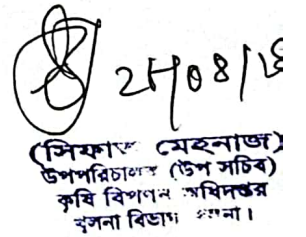 (সিফাত মেহনাজ)
উপপরিচালক (উপ সচিব)
কৃষি বিপণন অধিদপ্তর
খুলনা বিভাগ খুলনা।